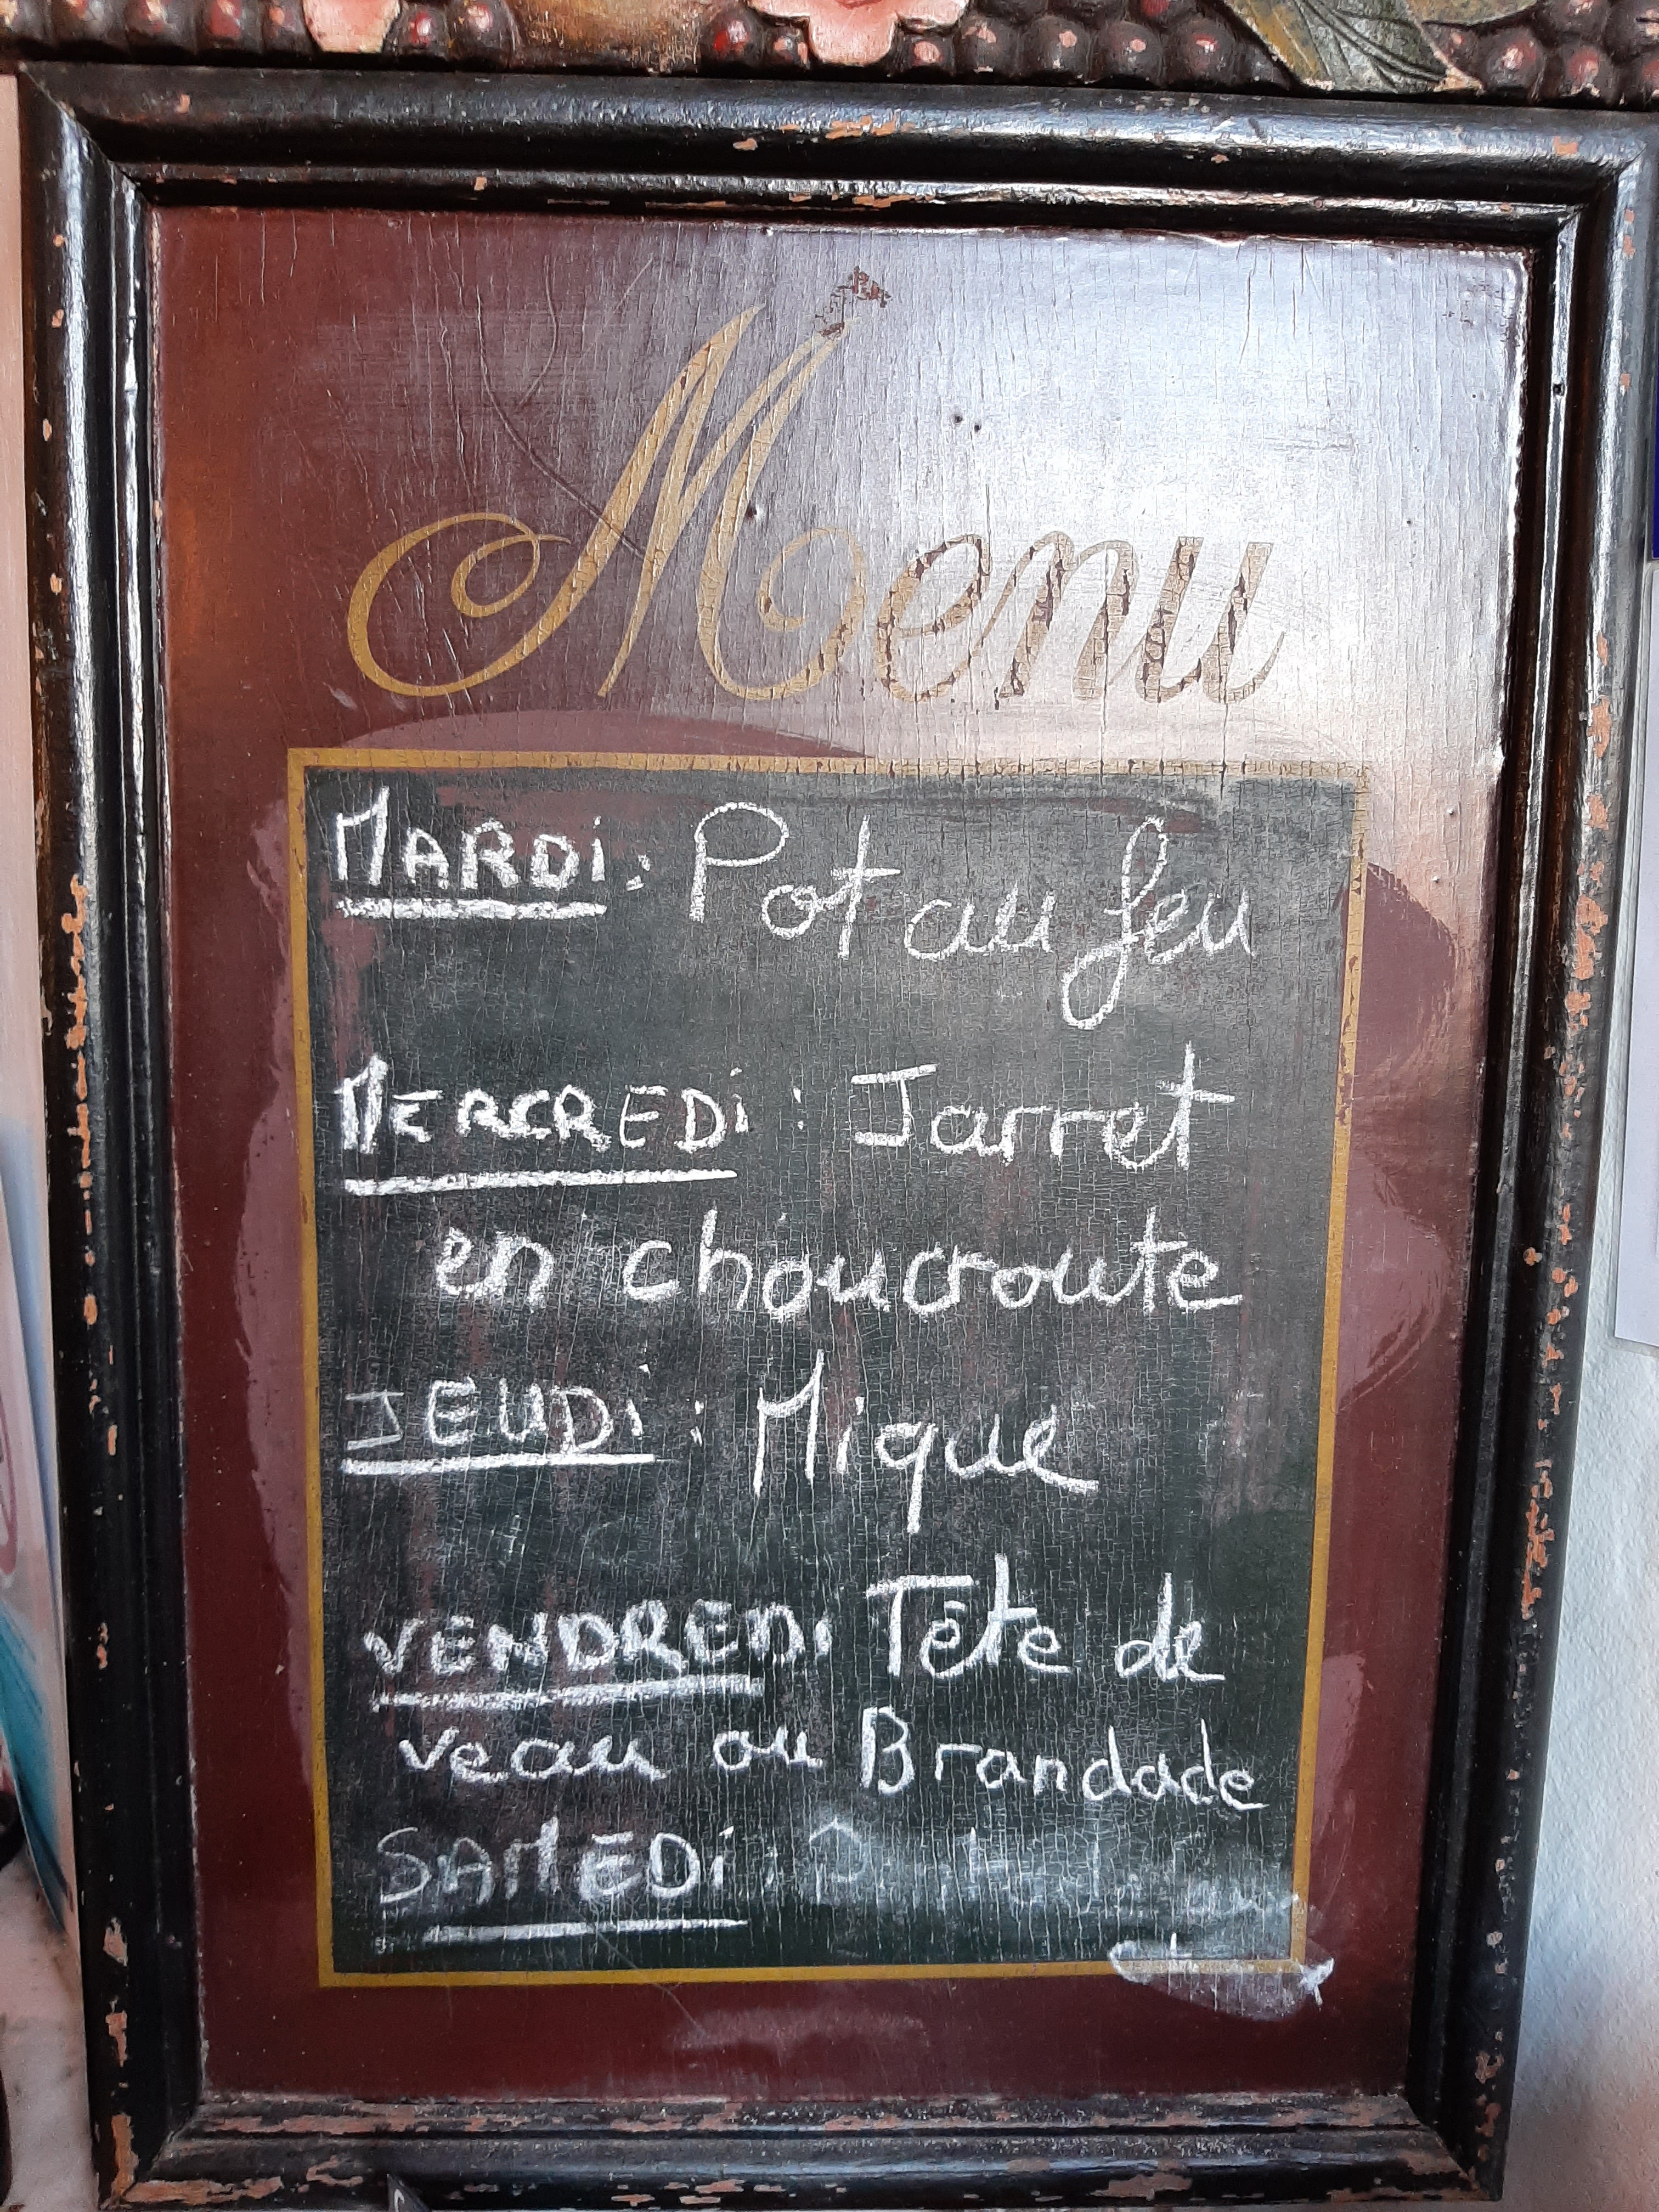 Menu
MARDi : Pot au feu
MERCREDi : Jarret
en choucroute
JEUDi : Mique
VENDREDi Tête de
veau ou Brandade
SAMEDi :